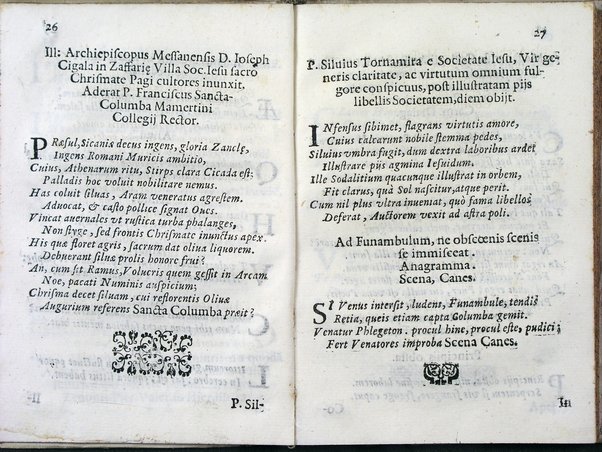 26
Ill: Archiepiscopus Messanensis D. Ioseph
Cigala in Zaffarię Villa Soc. Iesu sacro
Chrismate Pagi cultores inunxit.
Aderat P. Franciscus Sancta-
Columba Mamertini
Collegij Rector.
PRæsul, Sicaniæ decus ingens, gloria Zanclę,
Ingens Romani Muricis ambitio,
Cuius, Athenarum ritu, Stirps clara Cicada est:
Palladis hoc voluit nobilitare nemus.
Has coluit siluas, Aram veneratus agrestem.
Aduocat, & casto pollice signat Oues.
Vincat auernales vt rustica turba phalanges,
Non styge, sed frontis Chrismate inunctus apex.
His quæ floret agris, sacrum dat oliua liquorem.
Debuerant siluæ prolis honore frui?
An, cum sit Ramus, Volucris quem gessit in Arcam
Noe, pacati Numinis auspicium;
Chrisma decet siluam, cui reflorentis Oliuæ
Augurium referens Sancta Columba præit?
P. Sil-
27
P. Siluius Tornamira e Societate Iesu, Vir ge-
neris claritate, ac virtutum omnium ful-
gore conspicuus, post illustratam pijs
libellis Societatem, diem obijt.
INfensus sibimet, flagrans virtutis amore,
Cuius calcarunt nobile stemma pedes,
Siluius vmbra fugit, dum dextra laboribus ardet
Illustrare pijs agmina Iesuidum.
Ille Sodalitium quacunque illustrat in orbem,
Fit clarus, quà Sol nascitur, atque perit.
Cum nil plus vltra inueniat, quò fama libellos
Deferat, Auctorem vexit ad astra poli.
Ad Funambulum, ne obscœnis scenis
se immisceat.
Anagramma.
Scena, Canes.
SI Venus intersit, ludent, Funambule, tendis
Retia, queis etiam capta Columba gemit.
Venatur Phlegeton. procul hinc, procul este, pudici;
Fert Venatores improba Scena Canes.
In